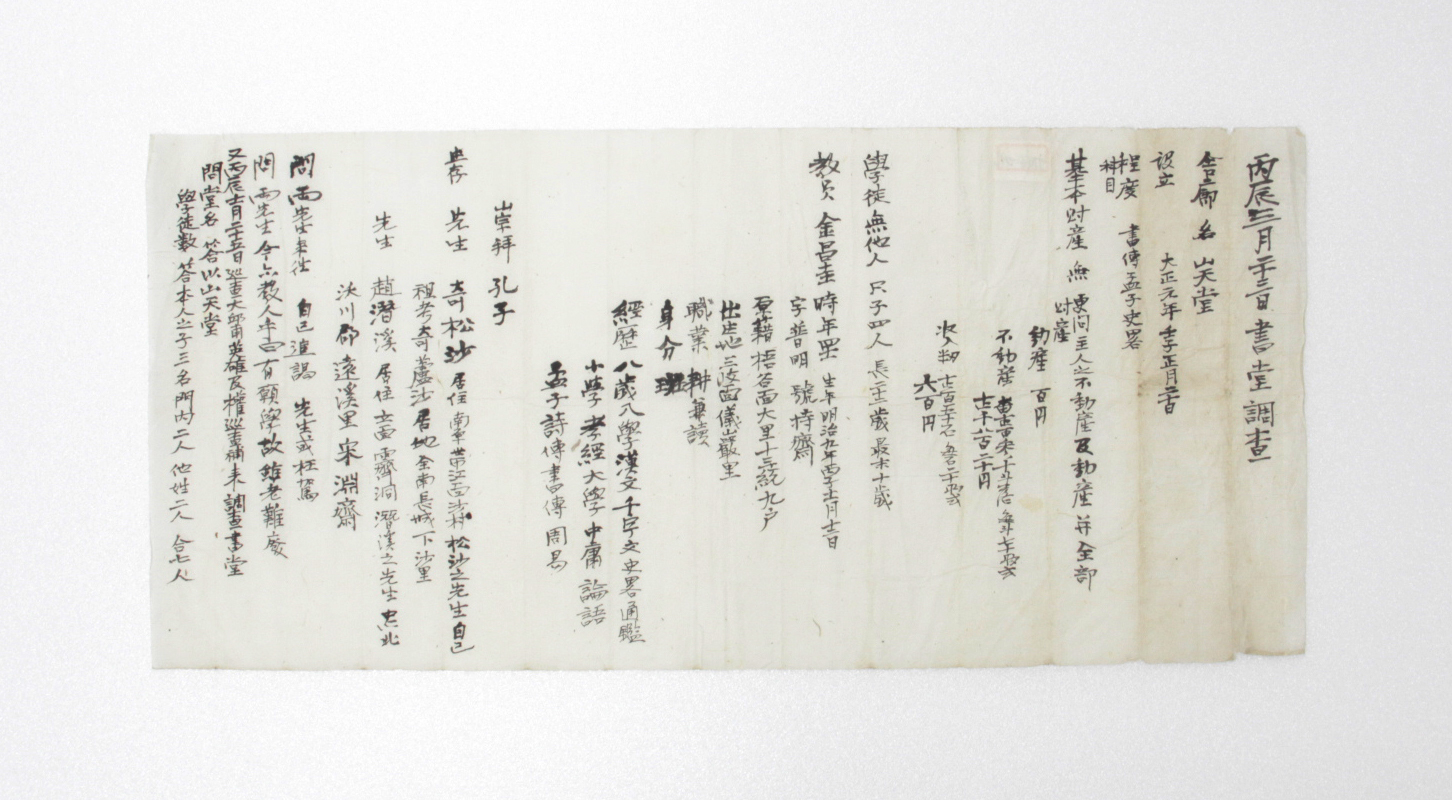 丙辰三月二十三日書堂調查
舍廊名 山天堂
設立 大正元年壬子正月二十日
程度 書傳孟子史畧
科目
基本財産 無 更问主人之不動産及動産并全部
財産
動産 百円
不動産
六百円
學徒無他人 只子四人 長二十二歲 最末十歲
教員 金昌圭 時年 生年明治九年丙子十一月十二日
字普明 號持齋
原籍 梧谷面大里十三統九戶
出生地三沙面儀山嚴里
職業 耕兼讀
身分 班
經歷 八歲入學漢文千字文史畧通鑑
小學 孝經 大學 中庸 論語
孟子 詩傳 書傳 周易
崇拜 孔子
先生 奇松沙 居住 南草帶江面沙村 松沙之先生自己
祖考奇蘆沙 居地全南長城下沙里
先生 趙潛溪 居住 立面靈洞 潛溪之先生忠北
沃川郡遠溪里宋淵齋
問 両先生來往 自己進謁 先生或枉駕
問 両先生今亡 敎人乎 曰有願學故雖老難廢
又丙辰十一月二十五日巡查大邱甫英雄及權巡查補來調查書堂
問堂名 答以山天堂
學徒數 答本人之子三名門內二人 他姓二人 合七人